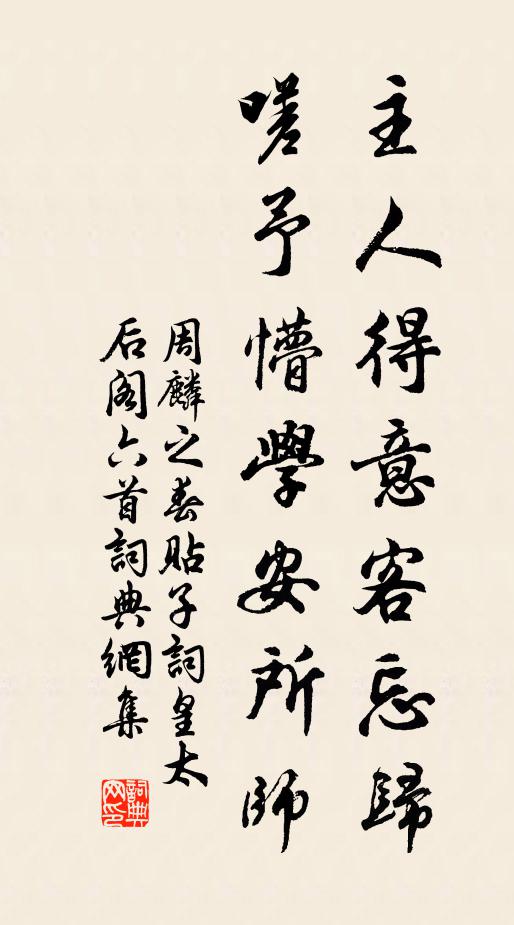 主人得意客忘歸
嗟予懵學安所師
周麟之春貼子詞皇太
后閣六首詞典網集
詞典网印